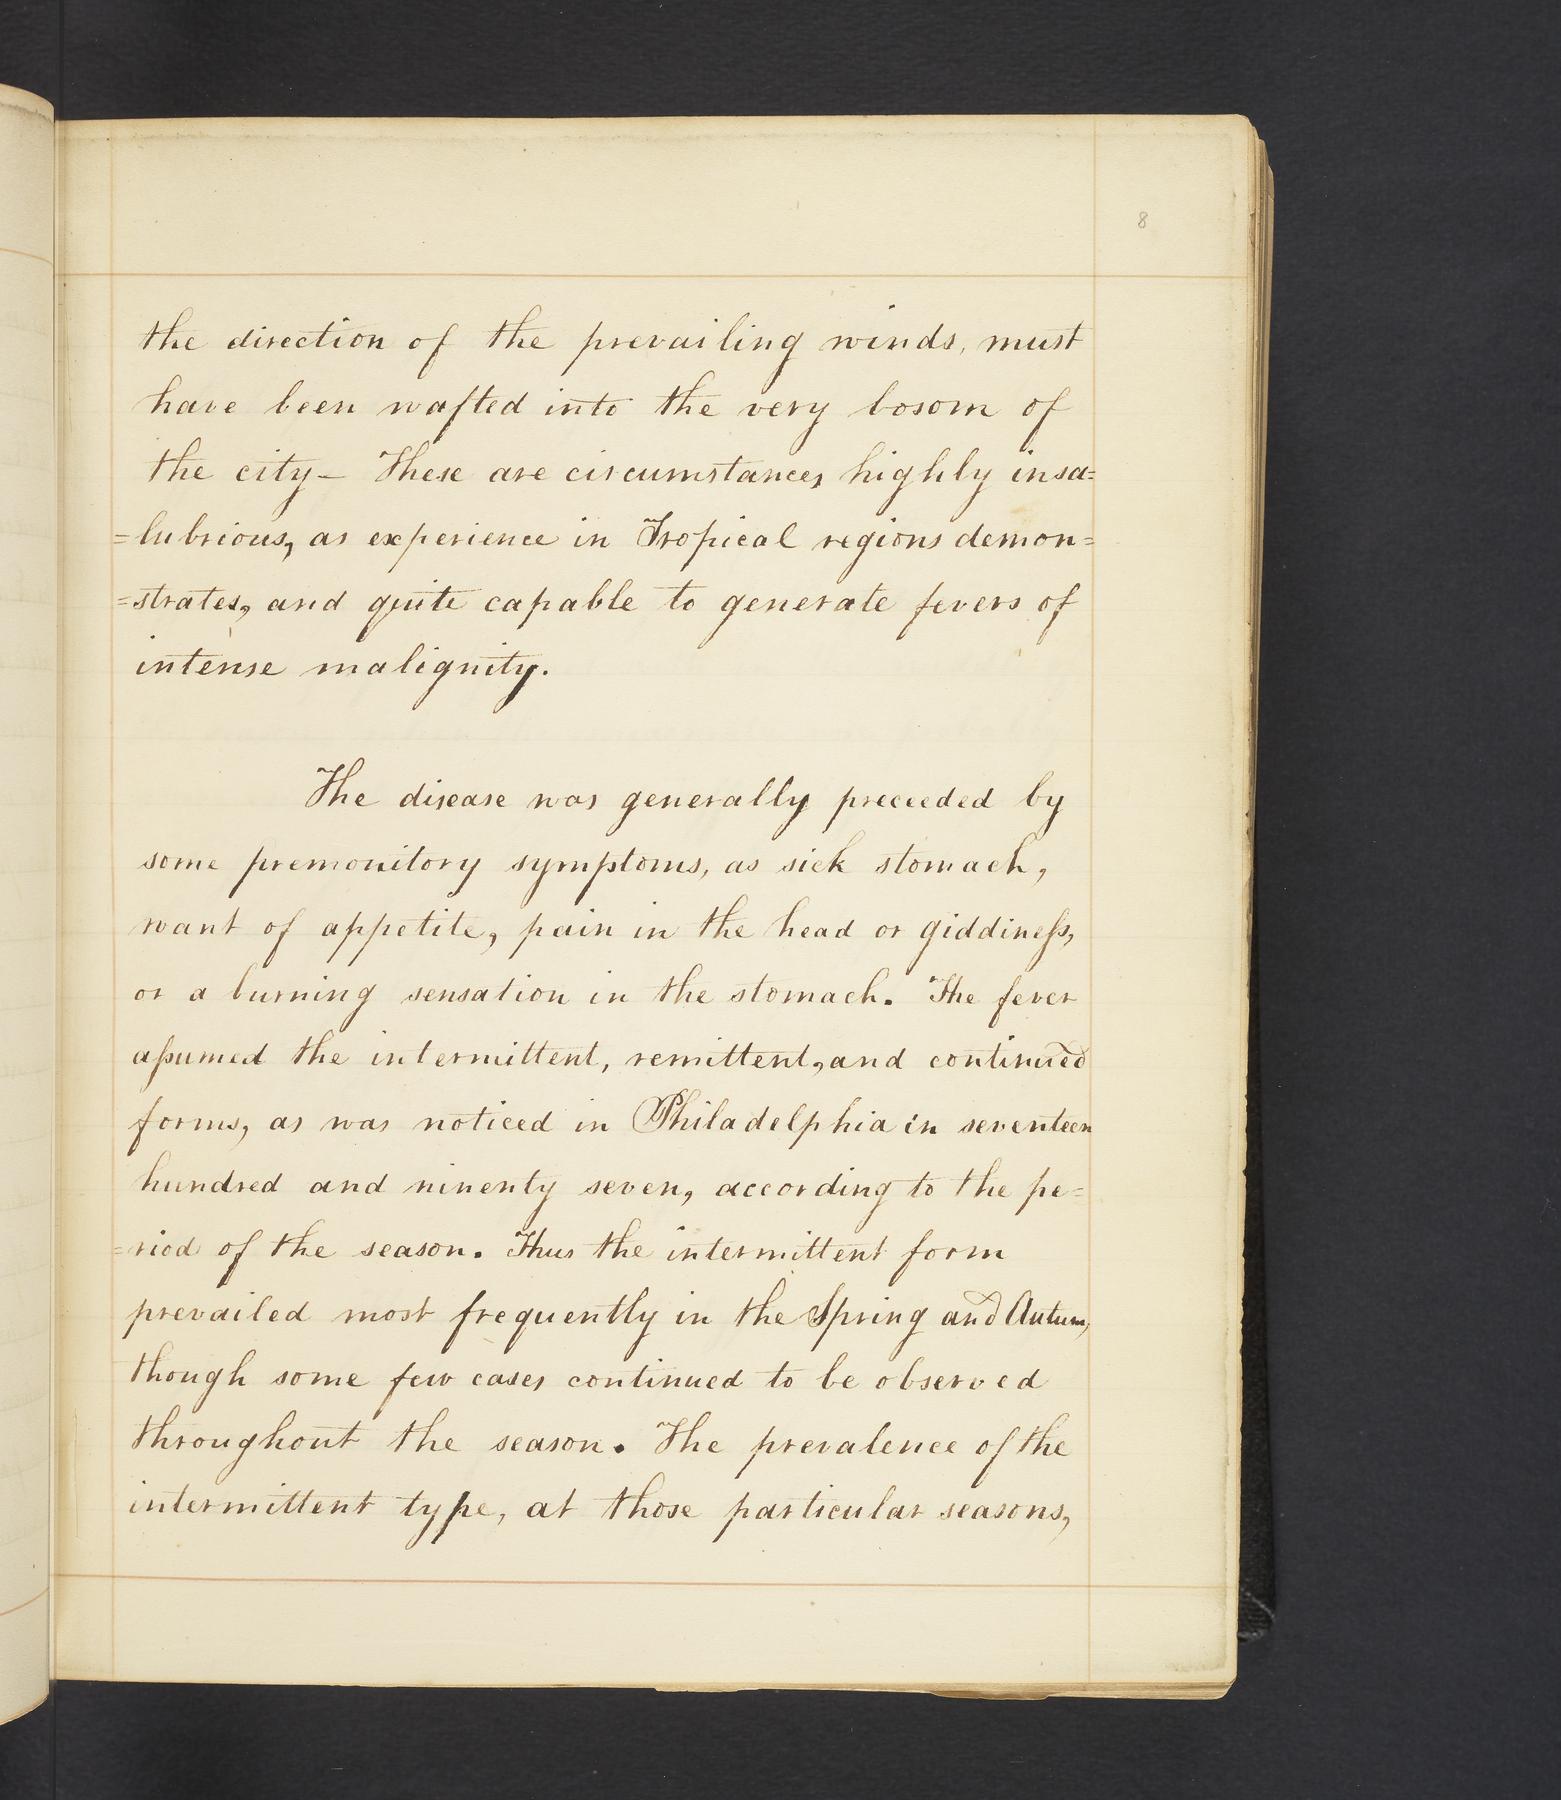 8
the direction of the prevailing winds, must
have been wafted into the very bosom of
the city— These are circumstances highly insa=
=lubrious, as experience in Tropical regions demon=
=strates, and quite capable to generate fevers of
intense malignity.
The disease was generally preceeded by
some premonitory symptoms, as sick stomach,
want of appetite, pain in the head or giddineſs,
or a burning sensation in the stomach. The fever
aſsumed the intermittent, remittent, and continued
forms, as was noticed in Philadelphia in seventeen
hundred and ninenty seven, according to the pe=
=riod of the season. Thus the intermittent form
prevailed most frequently in the Spring and Autum,
though some few cases continued to be observed
throughout the season. The prevalence of the
intermittent type, at those particular seasons,